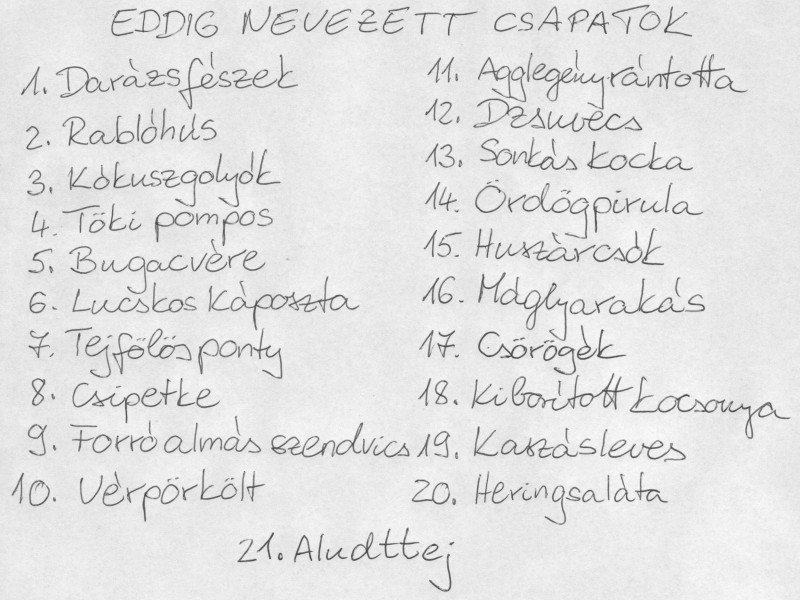 EDDIG NEVEZETT CSAPATOK
1. Darázsfészek
2. Rablóhús
3. Kókuszgolyók
4. Töki pompos
5. Bugacvère
6. Lucskos Káposzta
7. Tejfölös ponty
8. Csipetke
9. Forró almás szendvics
10. Vèrpörkölt
11. Agglegényrántotta
12. Dzsuvècs
13. Sonkás kocka
14. Ördögpirula
15. Huszárcsók
16. Máglyarakás
17. Csörögèk
18. Kiborított kocsonya
19. Kaszásleves
20. Heringsaláta
21. Aludttej